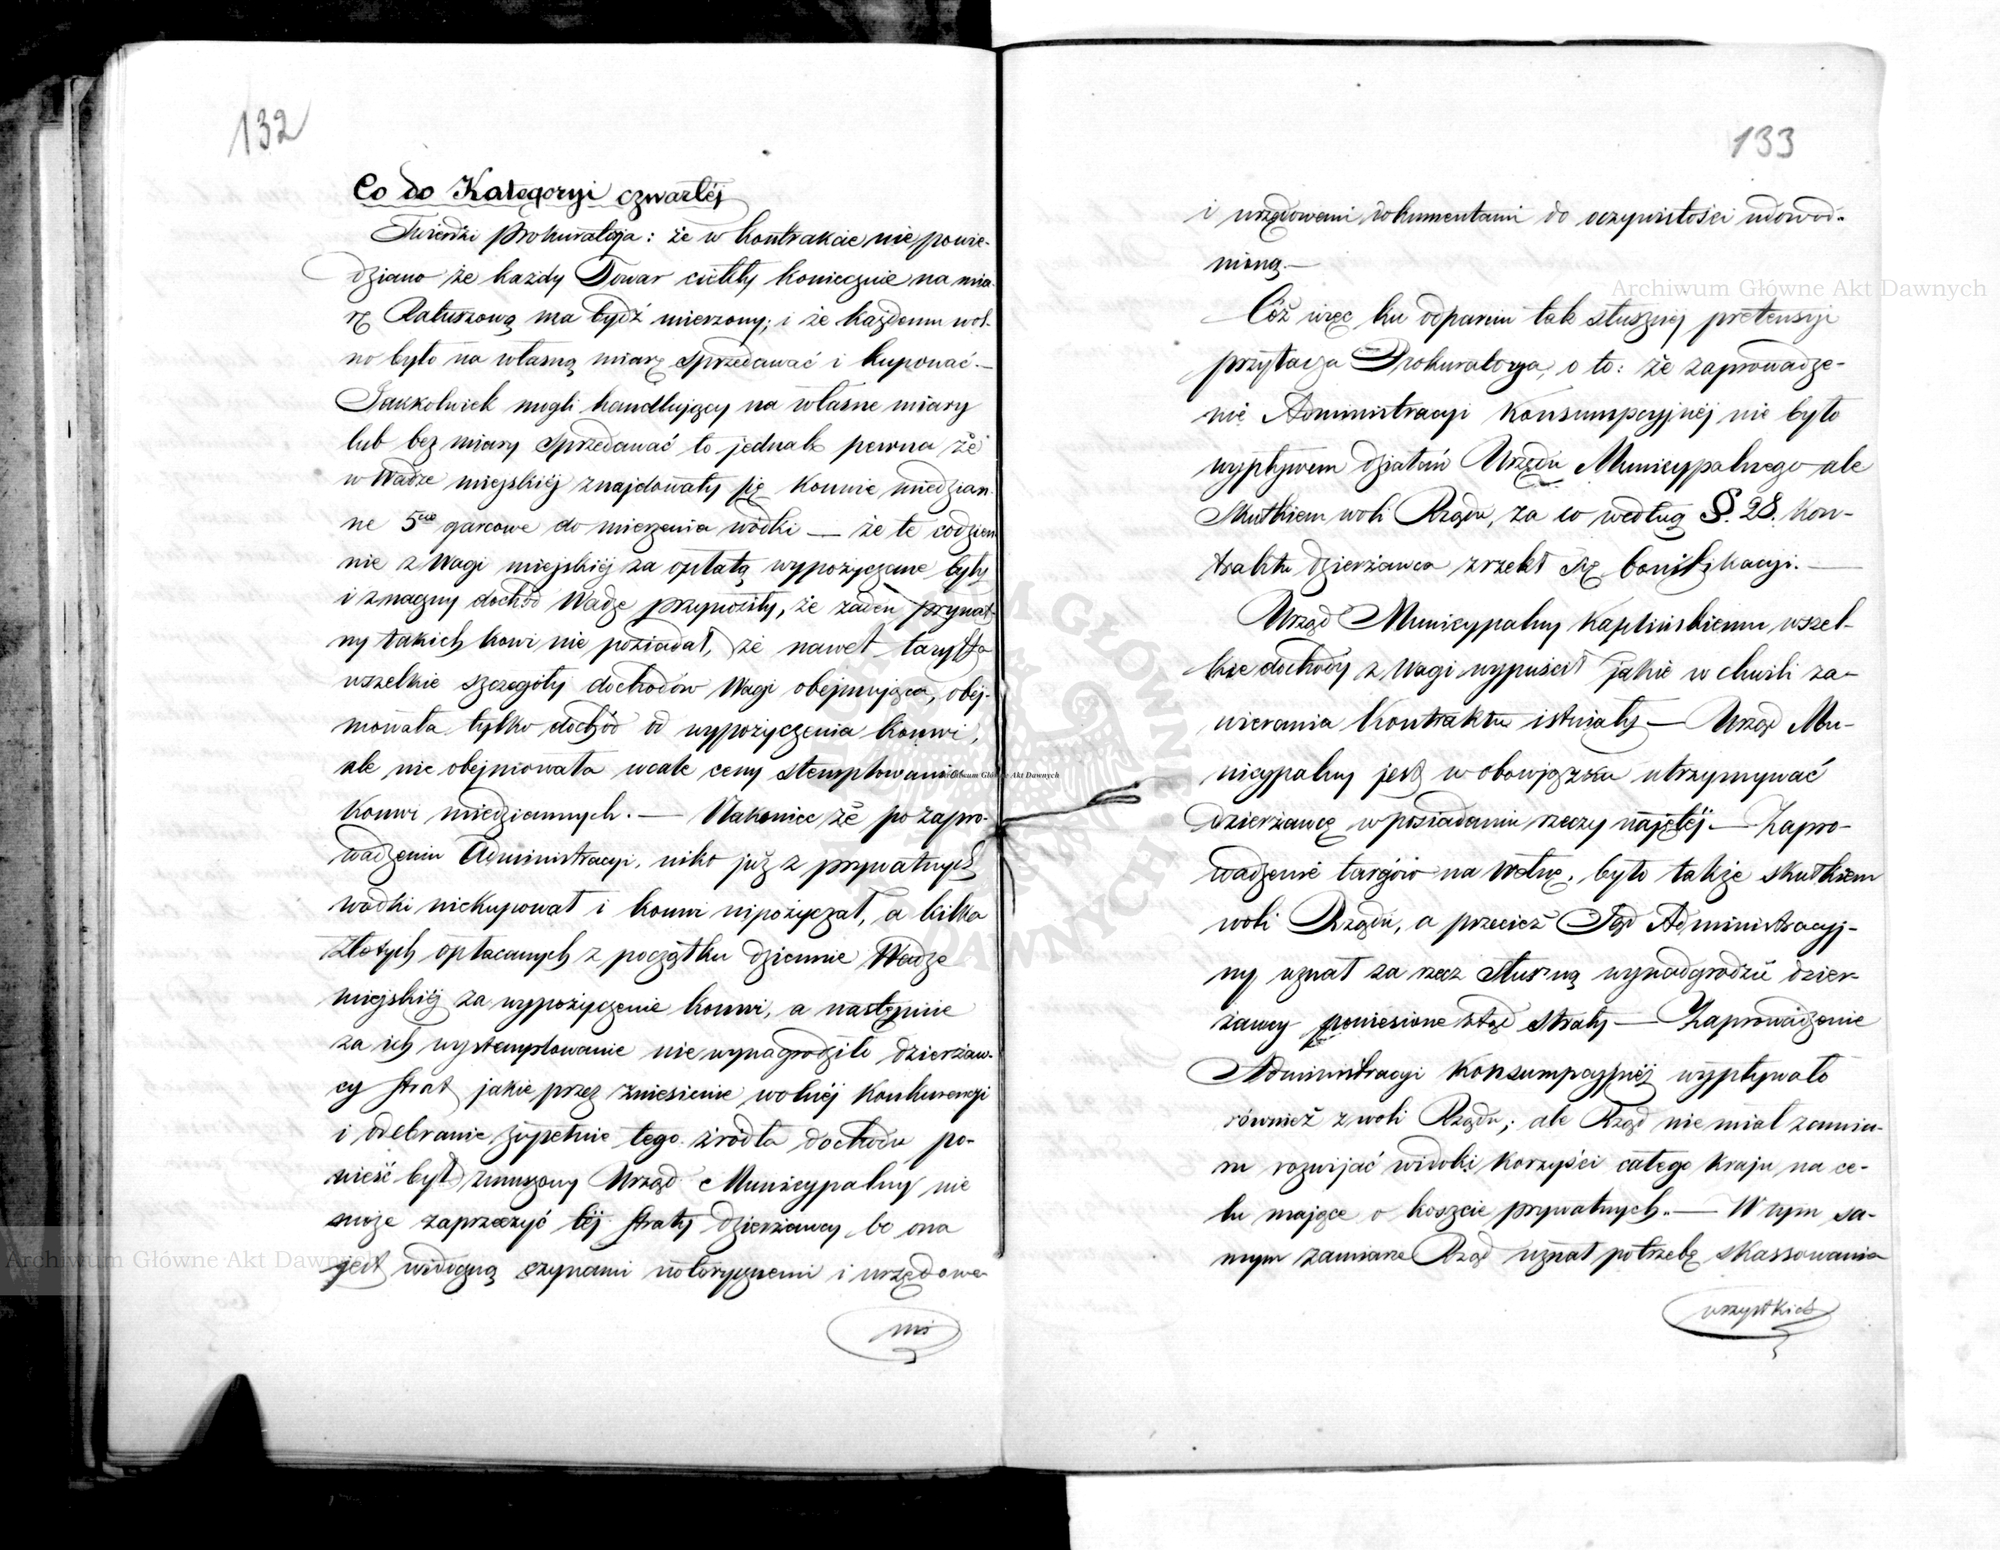 132
Co do Kategoryi czwartéj
Twierdzi Prokuratorja: że w kontrakcie nie powie-
dziano że każdy Towar ciekły koniecznie na mia-
rę Ratuszową ma bydź mierzony; i że każdemu wol-
no było na własną miarę sprzedawać i kupować.—
Jakkolwiek mogli handlujący na własne miary
lub bez miary sprzedawać to jednak pewna że
w Wadze miejskiéj znajdowały się konwie miedzian-
ne 5cio garcowe do mierzenia wódki — że te codzien
nie z Wagi miejskiéj za opłatą wypożyczane były
i znaczny dochód Wadze przynosiły, że żaden prywat-
ny takich konwi nie posiadał, że nawet taryffa
wszelkie szczegóły dochodów Wagi obejmująca, obej-
mowała tylko dochód od wypożyczenia konwi,
ale nie obejmowała wcale ceny stemplowania
konwi miedziannych.— Nakoniec że po zapro-
wadzeniu Administracyi, nikt już z prywatnych
wódki niekupował i konwi niepożyczał, a kilka
złotych opłacanych z początku dziennie Wadze
miejskiéj za wypożyczenie konwi, a następnie
za ich wystemplowanie nie wynagrodziło dzierżaw-
cy strat jakie przez zniesienie wolnéj konkurencyi
i odebranie zupełnie tego źródła dochodu po-
nieść był zmuszony Urząd Municypalny nie
może zaprzeczyć téj straty dzierżawcy bo ona
jest widoczną czynami notorycznemi i urzędowe-
mi
133
i urzędowemi dokumentami do oczywistości udowod-
nioną.—
Cóż więc ku odparciu tak słusznéj pretensyi
przytacza Prokuratorya, o to: że zaprowadze-
nie Administracyi Konsumpcyjnéj nie było
wypływem działań Urzędu Municypalnego ale
skutkiem woli Rządu, za co według §. 28. kon-
traktu dzierżawca zrzekł się bonifikacyi.—
Urząd Municypalny Kaplińskiemu wszel-
kie dochody z Wagi wypuścił jakie w chwili za-
wierania kontraktu istniały — Urząd Mu-
nicypalny jest w obowiązku utrzymywać
dzierżawcę w posiadaniu rzeczy najętéj.— Zapro-
wadzenie targów na Wełnę, było także skutkiem
woli Rządu, a przecież Sąd Administracyj-
ny uznał za rzecz słuszną wynadgrodzić dzier-
żawcy poniesione ztąd straty — Zaprowadzenie
Administracyi Konsumpcyjnéj wypływało
również z woli Rządu; ale Rząd nie miał zamia-
ru rozwijać widoki korzyści całego kraju na ce-
lu mające o koszcie prywatnych.— W tym sa-
mym zamiarze Rząd uznał potrzebę skassowania
wszystkich
Archiwum Główne Akt Dawnych
Archiwum Główne Akt Dawnych
Archiwum Główne Akt Dawnych